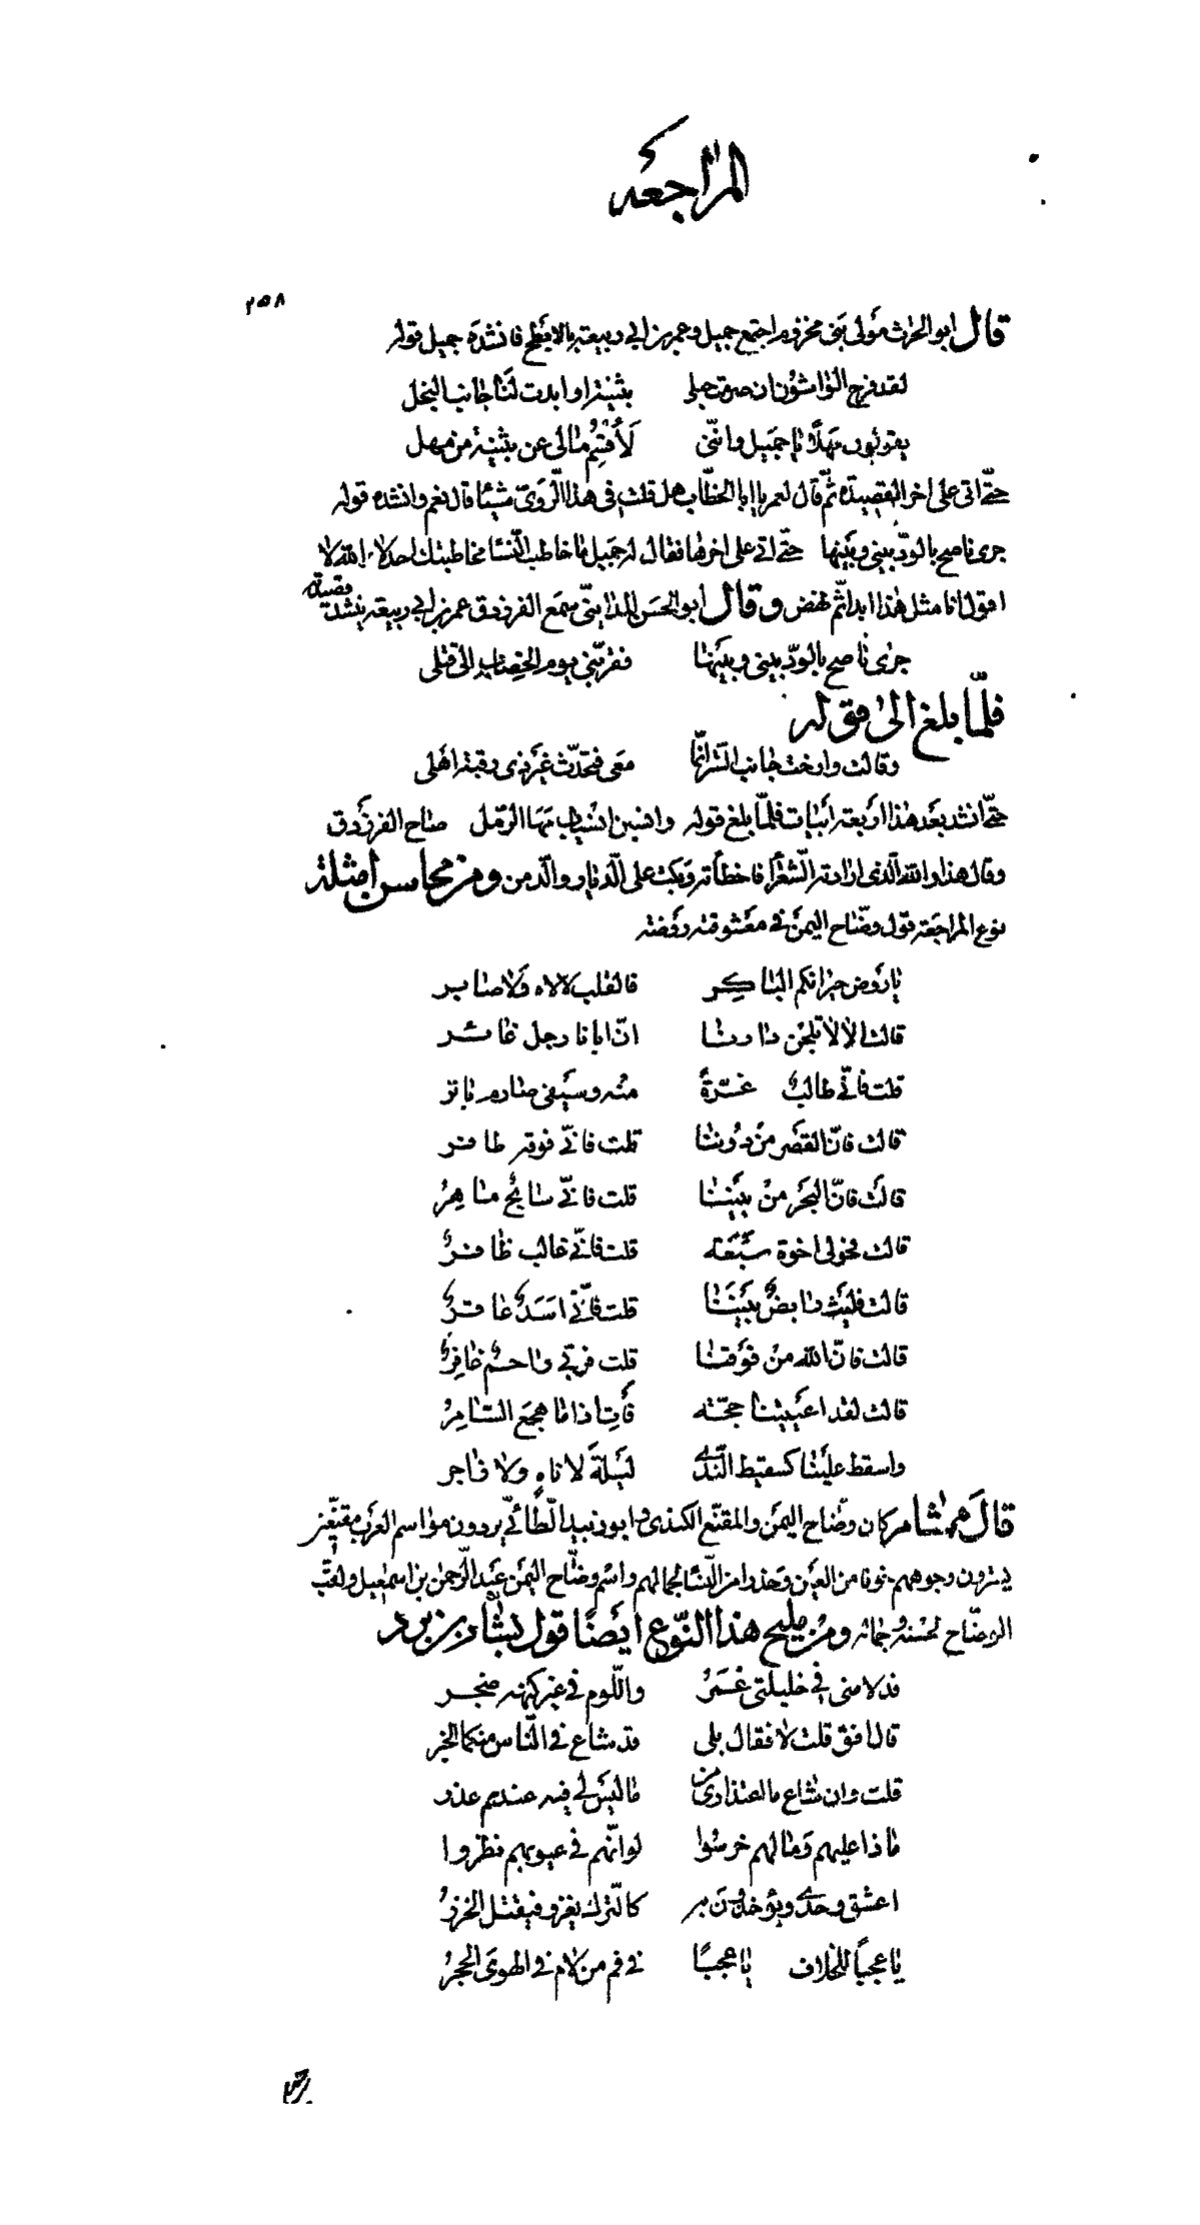 المراجعه
٢٥٨
قال ابو الحرث مولى بنى مخزوم اجتمع جميل وعمر بن ابي ربيعة بالابطح فانشده جميل قوله
لقد فرح الواشون ان صرمت حبلى بثينة او ابدت لنا جانب البخل
يقولون مهلًا يا جميل وانّنى لَأُقْسِمُ مالى عن بثينة من مهل
حتّى اتى على اخر القصيدة ثمّ قال لعمر يا ابا الخطّاب هل قلت فى هذا الرّوىّ شيئا قال نعم وانشده قوله
جرى ناصح بالودّ بينى وبينها حتّى اتى على اخرها فقال له جميل ما خاطب النّسا مخاطبتك احد لا والله لا
اقول انا مثل هذا ابدا ثمّ نهض وقال ابو الحسن المداينى سمع الفرزدق عمر بن ابي ربيعة ينشد قصيدته
جرى ناصح بالودّ بينى وبينها فقربّنى يوم الخضاب الى قتلى
فلمّا بلغ الى قوله
وقالت وارخت جانب السّتر انّما معى فتحدّث غير ذى رقبة اهلى
حتّى انشد بعد هذا اربعة ابيات فلمّا بلغ قوله صاح الفرزدق
وقال هذا والله الّذى ارادته الشّعرا فاخطأته وبكت على الدّيار والدّمن ومن محاسن امثلة
نوع المراجعة قول وضّاح اليمن فى معشوقته روضة
يا روض جيرانكم الباكر فالقلب لا لاه ولا صابر
قالت الا لا تلجن دارنا انّ ابانا رجل غاير
قلت فانّى طالب غرّة منه وسيفى صارم باتر
قالت فانّ القصر من دوننا قلت فانّى فوقه ظاهر
قالت فانّ البحر من بيننا قلت فانّى سابح ماهر
قالت فحولى اخوة سبعة قلت فانّى غالب ظافر
قالت فليث رابض بيننا قلت فانّى اسد عاقر
قالت فانّ الله من فوقنا قلت فربّى راحم غافر
قالت لقد اعييتنا حجّة فأت اذا ما هجع السّامر
واسقط علينا كسقيط النّدى ليلة لا ناه ولا زاجر
قال هشام كان وضّاح اليمن والمقنّع الكندى وابو زبيد الطّائى يردون مواسم العرب مقنّعين
يسترون وجوههم خوفا من العين وحذرا من النّسا لجمالهم واسم وضّاح اليمن عبد الرّحمن بن اسمعيل ولقّب
الوضّاح لحسنه وجماله ومن مليح هذا النّوع ايضًا قول بشّار بن برد
قد لامنى فى خليلتى عمر واللّوم فى غير كنهه ضجر
قال افق قلت لا فقال بلى قد شاع فى النّاس منكما الخبر
قلت وان شاع ما اعتذارى من ما ليس لى فيه عندهم عذر
ماذا عليهم وما لهم خرسوا لو انّهم فى عيوبهم نظروا
اعشق وحدى ويؤخذون به كالتّرك يغزو فيقتل الخزر
يا عجبًا للخلاف يا عجبًا فى فم من لام فى الهوى الحجر